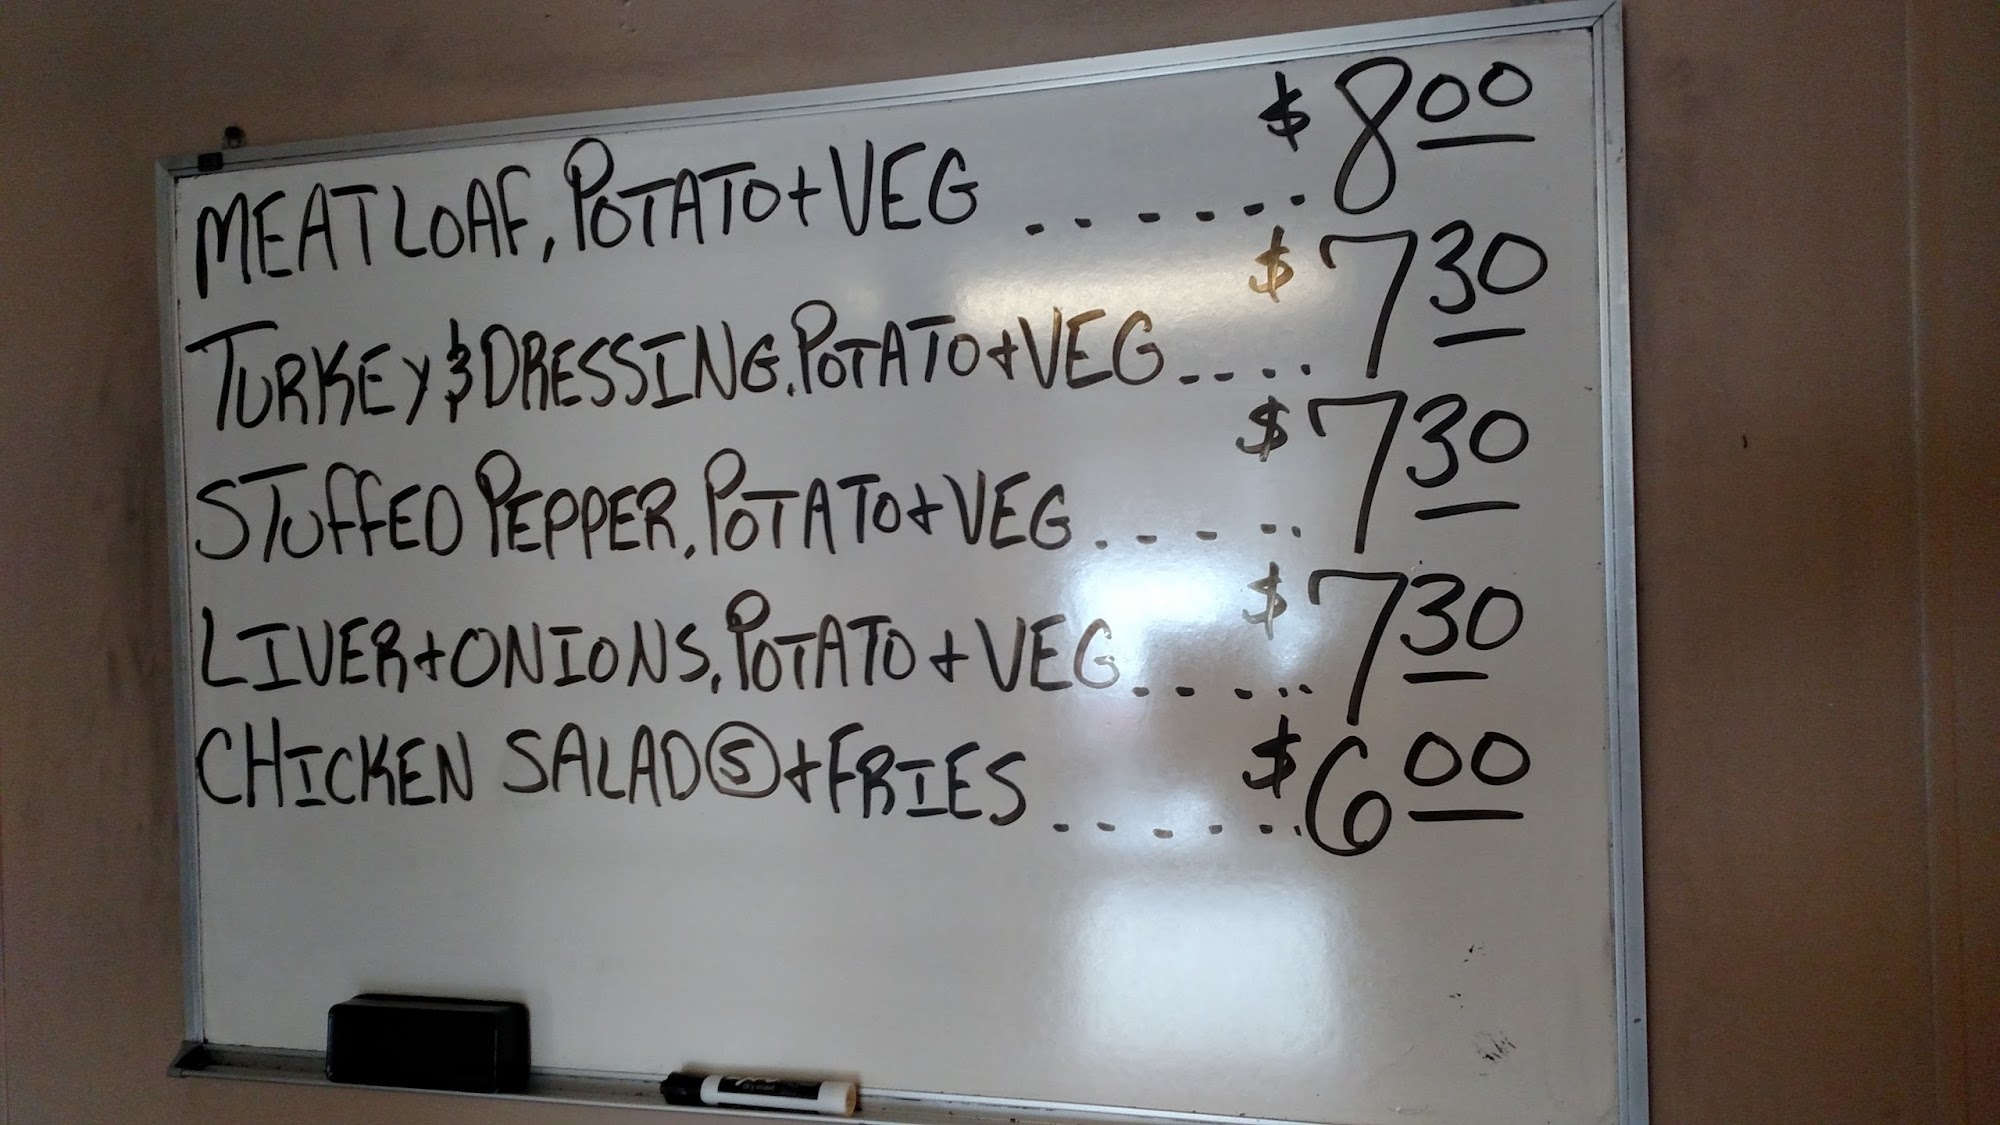 MEATLOAF, POTATO + VEG ...... $8.00
TURKEY & DRESSING, POTATO + VEG .... $7.30
STUFFED PEPPER, POTATO + VEG ..... $7.30
LIVER + ONIONS, POTATO + VEG ..... $7.30
CHICKEN SALAD Ⓢ + FRIES ...... $6.00